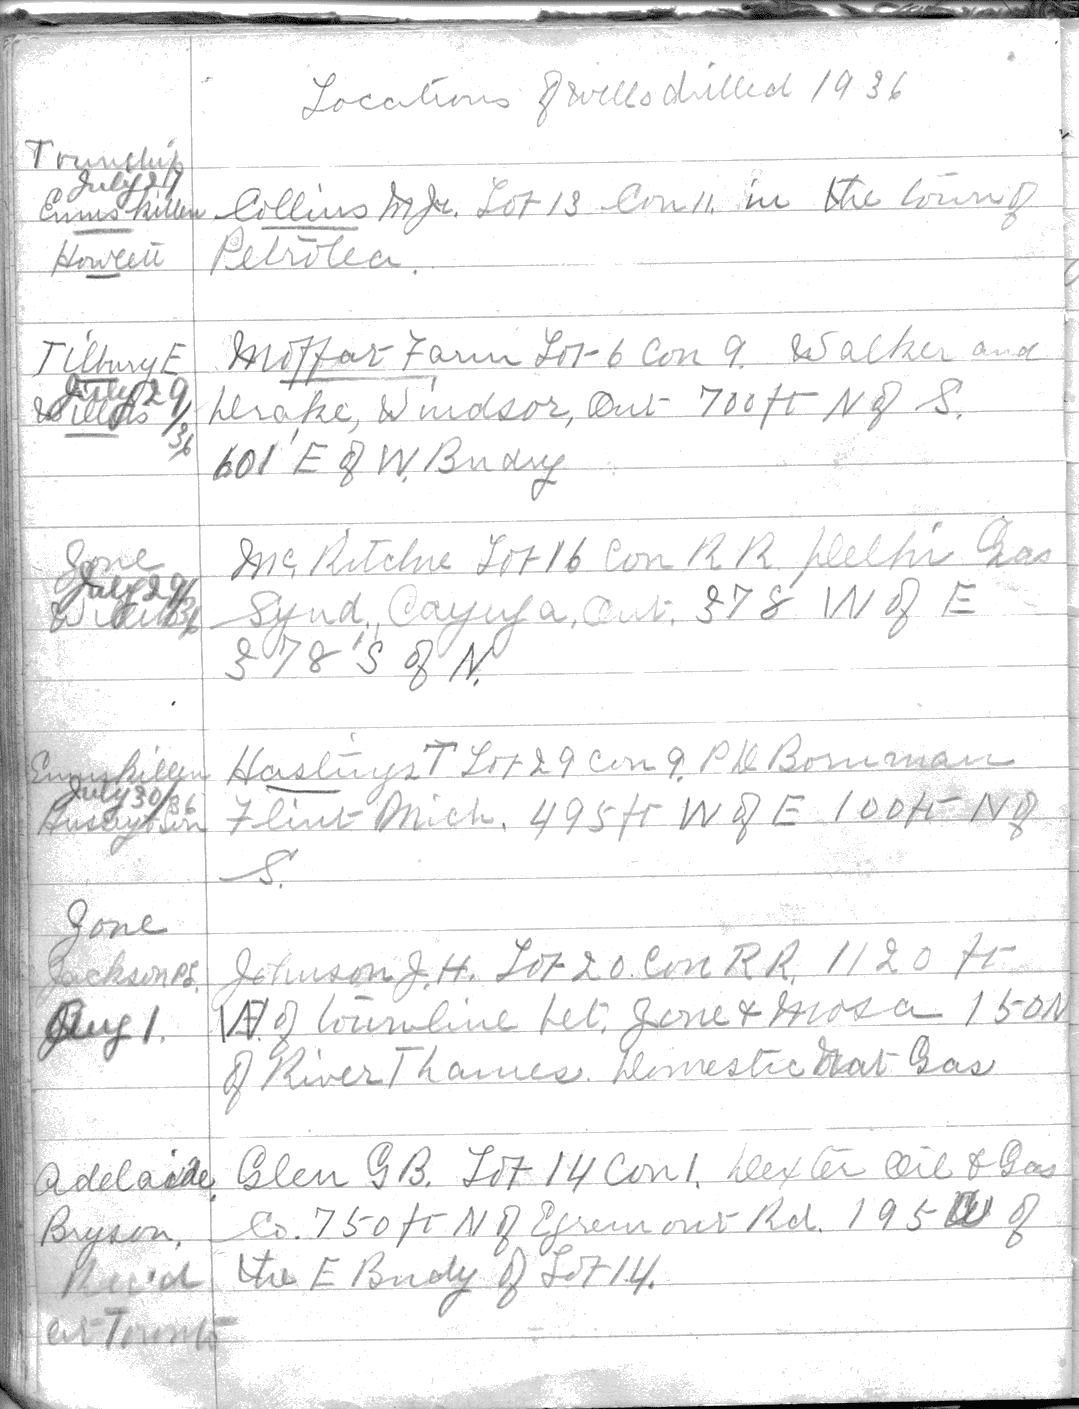 Locations of wells drilled 1936
Township
July 29
Enniskillen Collins M Jr. Lot 13 Con 11. in the town of
Howlett Petrolea.
Tilbury E Moffat Farm Lot 6 Con 9. Walker and
July 29/36
Willets Drake, Windsor, Ont 700 ft N of S.
601' E of W. Bndry
Zone Mc Ritchie Lot 16 Con R R. Delhi Gas
July 29/36
Synd., Cayuga, Ont. 378' W of E
378' S of N.
Enniskillen Hastings T Lot 29 Con 9. P D Bowman
July 30/36
Flint Mich. 495 ft W of E 100 ft N of
S.
Zone
Jackson PS. Johnson J. H. Lot 20. Con R R. 1120 ft
Aug 1. of townline bet. Zone & Mosa 150 N
of River Thames. Domestic Nat Gas
Adelaide. Glen G B. Lot 14 Con 1. Dexter Oil & Gas
Bryson. Co. 750 ft N of Egremont Rd. 195 W of
Rec'd the E Bndy of Lot 14.
at Toronto